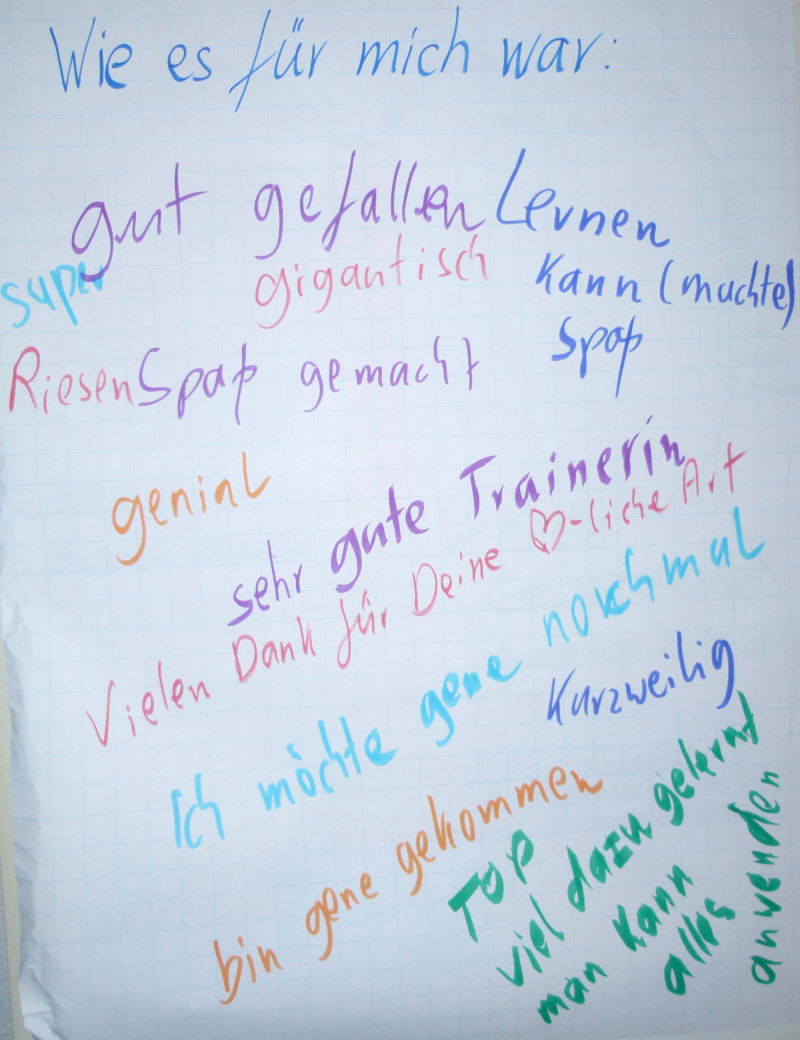 Wie es für mich war:
gut gefallen
Lernen
Kann (machte)
Spaß
super
gigantisch
Riesen Spaß gemacht
genial
sehr gute Trainerin
Vielen Dank für Deine ♡-liche Art
Ich möchte gene nochmal
Kurzweilig
bin gene gekommen
TOP
viel dazu gelernt
man kann
alles
anwenden